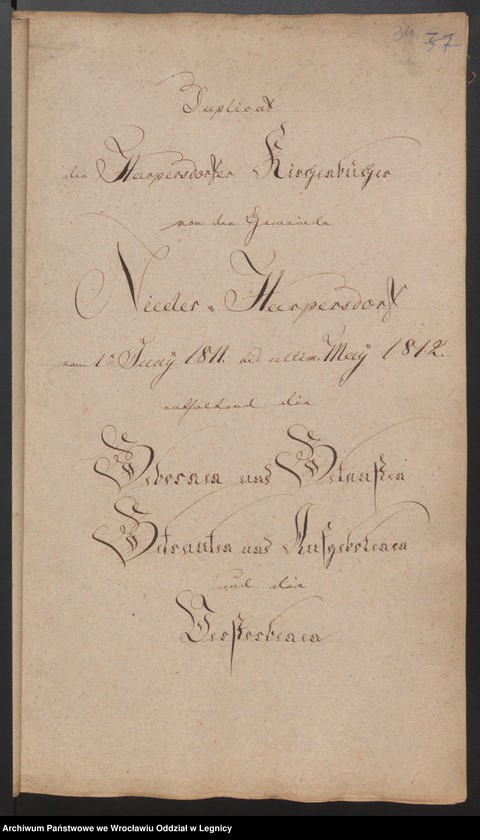 37
Duplicat
der Harpersdorfer Kirchenbücher
von der Gemeinde
Nieder-Harpersdorf
vom 1n Juny 1811. bis ultim. May 1812.
enthaltend die
Gebornen und Getauften
Getrauten und Aufgebotenen
und die
Verstorbenen
Archiwum Państwowe we Wrocławiu Oddział w Legnicy